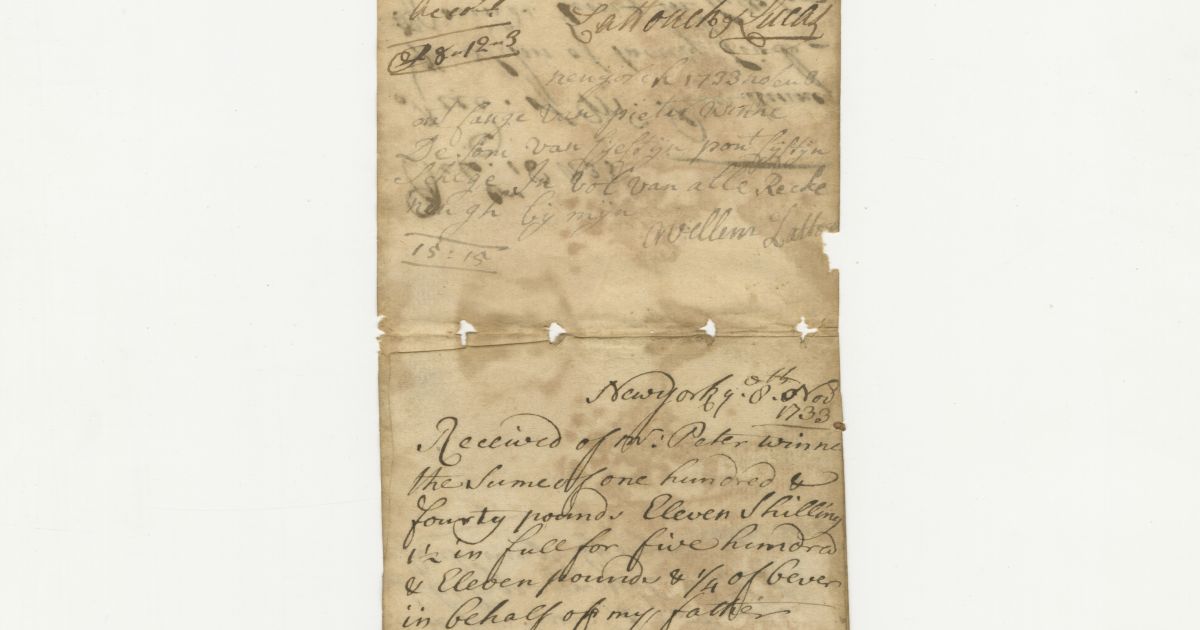 Lattouch & Lucas
£48-12-3
neuyorck 1733 nouem 8
ont fange van pieter winne
De som van fyftyn pont fyftyn
schelge In vol van alle Recke
nengh by myn
Wellem Lattou
15:15
Newyork y. 8th. Nod
1733
Received of Mr: Peter winne
the Sume of one hundred &
fourty pounds Eleven Shilling
1½ in full for five hundred
& Eleven pounds & ¼ of bever
in behalf of my father